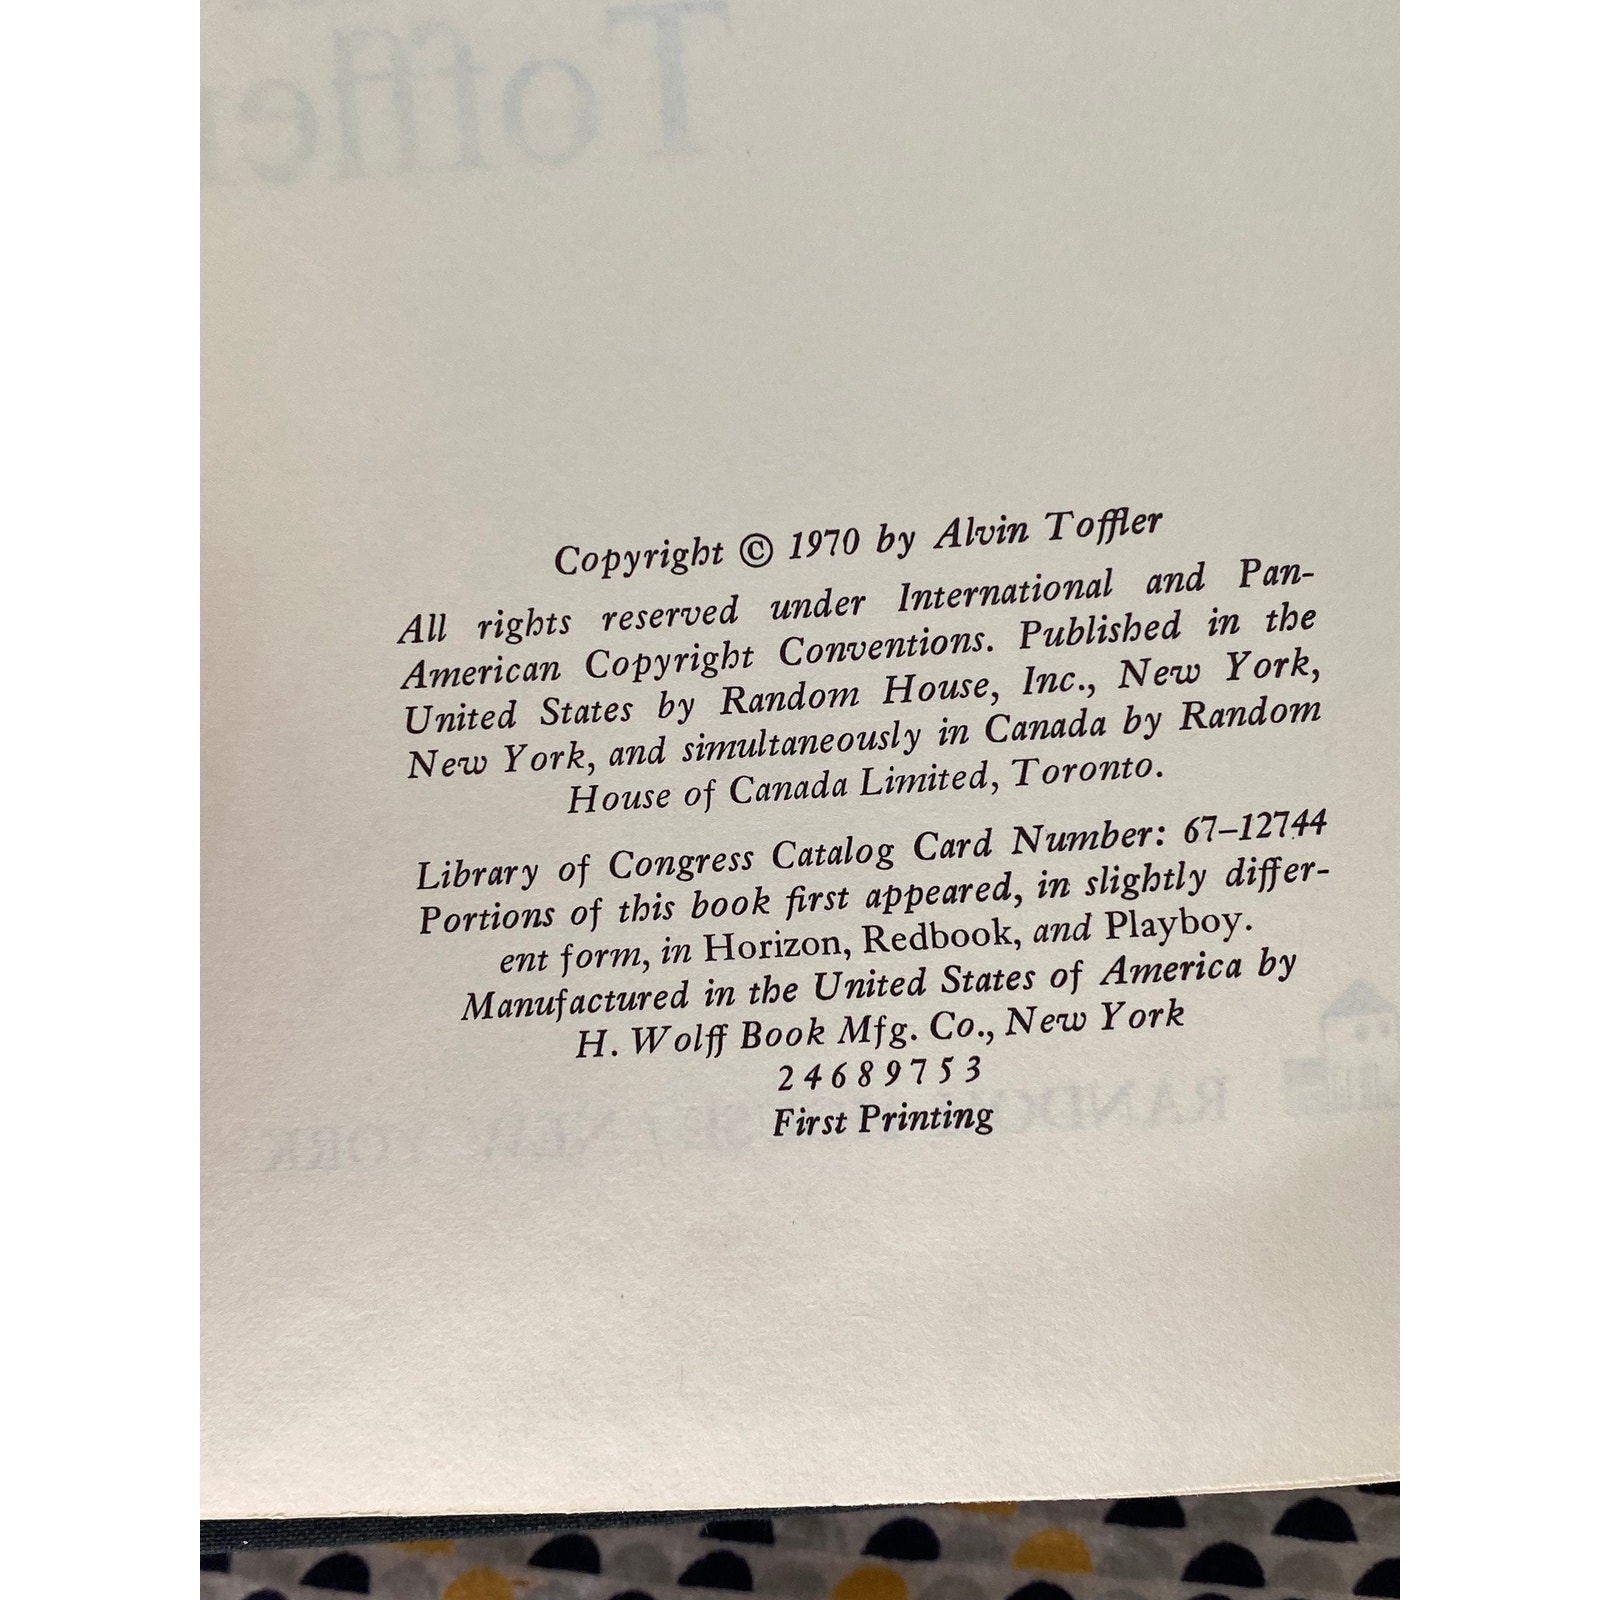 Toffler
Copyright © 1970 by Alvin Toffler
All rights reserved under International and Pan-
American Copyright Conventions. Published in the
United States by Random House, Inc., New York,
New York, and simultaneously in Canada by Random
House of Canada Limited, Toronto.
Library of Congress Catalog Card Number: 67–12744
Portions of this book first appeared, in slightly differ-
ent form, in Horizon, Redbook, and Playboy.
Manufactured in the United States of America by
H. Wolff Book Mfg. Co., New York
2 4 6 8 9 7 5 3
First Printing